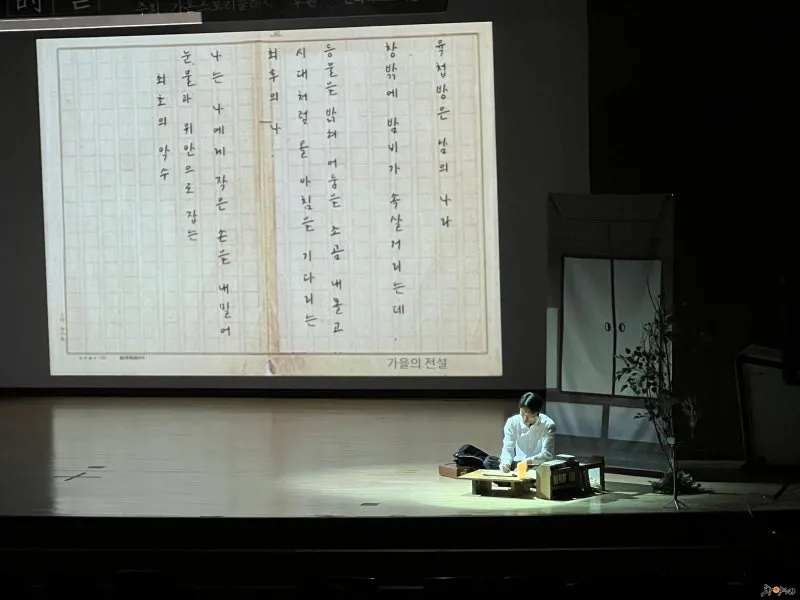 육첩방은 남의 나라
창밖에 밤비가 속살거리는데
등불을 밝혀 어둠을 조곰 내몰고
시대처럼 올 아침을 기다리는
최후의 나
나는 나에게 작은 손을 내밀어
눈물과 위안으로 잡는
최초의 악수
가을의 전설